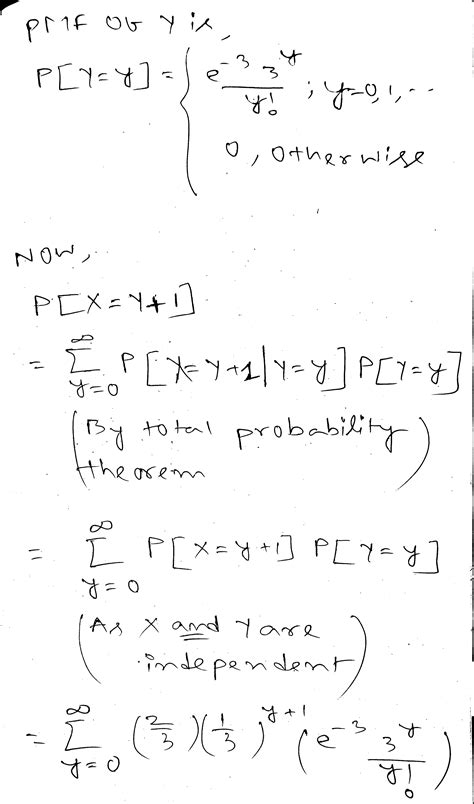 PMF Of Y is,
P[Y=y] = { e^{-3} 3^y / y! ; y=0,1,...
0, otherwise
NOW,
P[X=Y+1]
= ∑_{y=0}^{∞} P[X=Y+1|Y=y] P[Y=y]
(By total probability
theorem)
= ∑_{y=0}^{∞} P[X=y+1] P[Y=y]
(As X and Y are
independent)
= ∑_{y=0}^{∞} (2/3)(1/3)^{y+1} (e^{-3} 3^y / y!)